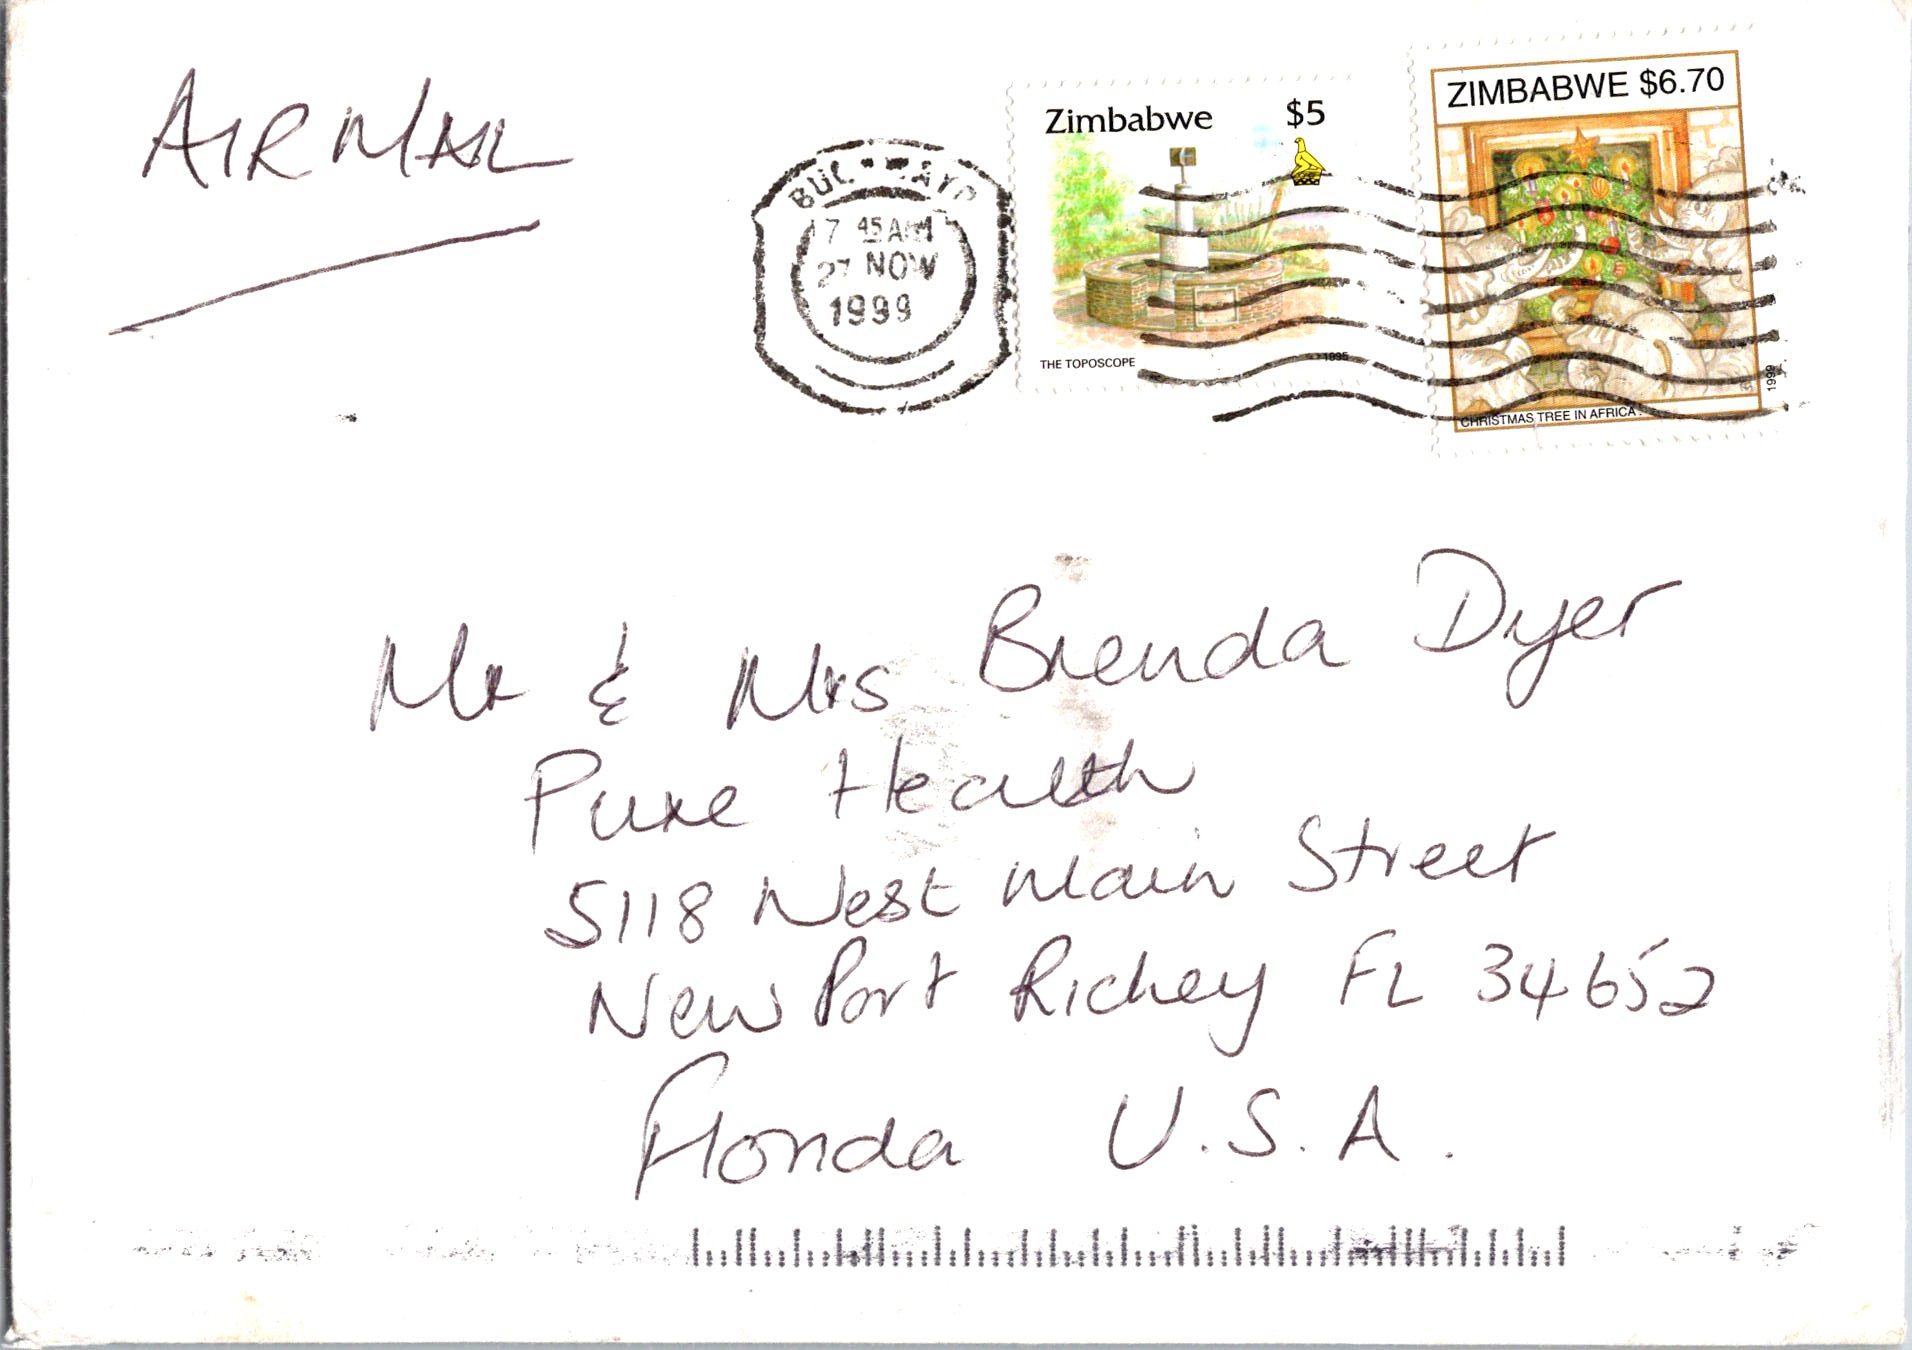 AIR MAIL
Zimbabwe $5
THE TOPOSCOPE 1995
ZIMBABWE $6.70
CHRISTMAS TREE IN AFRICA
1999
7 45 AM
27 NOV
1999
Mr & Mrs Brenda Dyer
Pure Health
5118 West Main Street
New Port Richey FL 34652
Florida U.S.A.